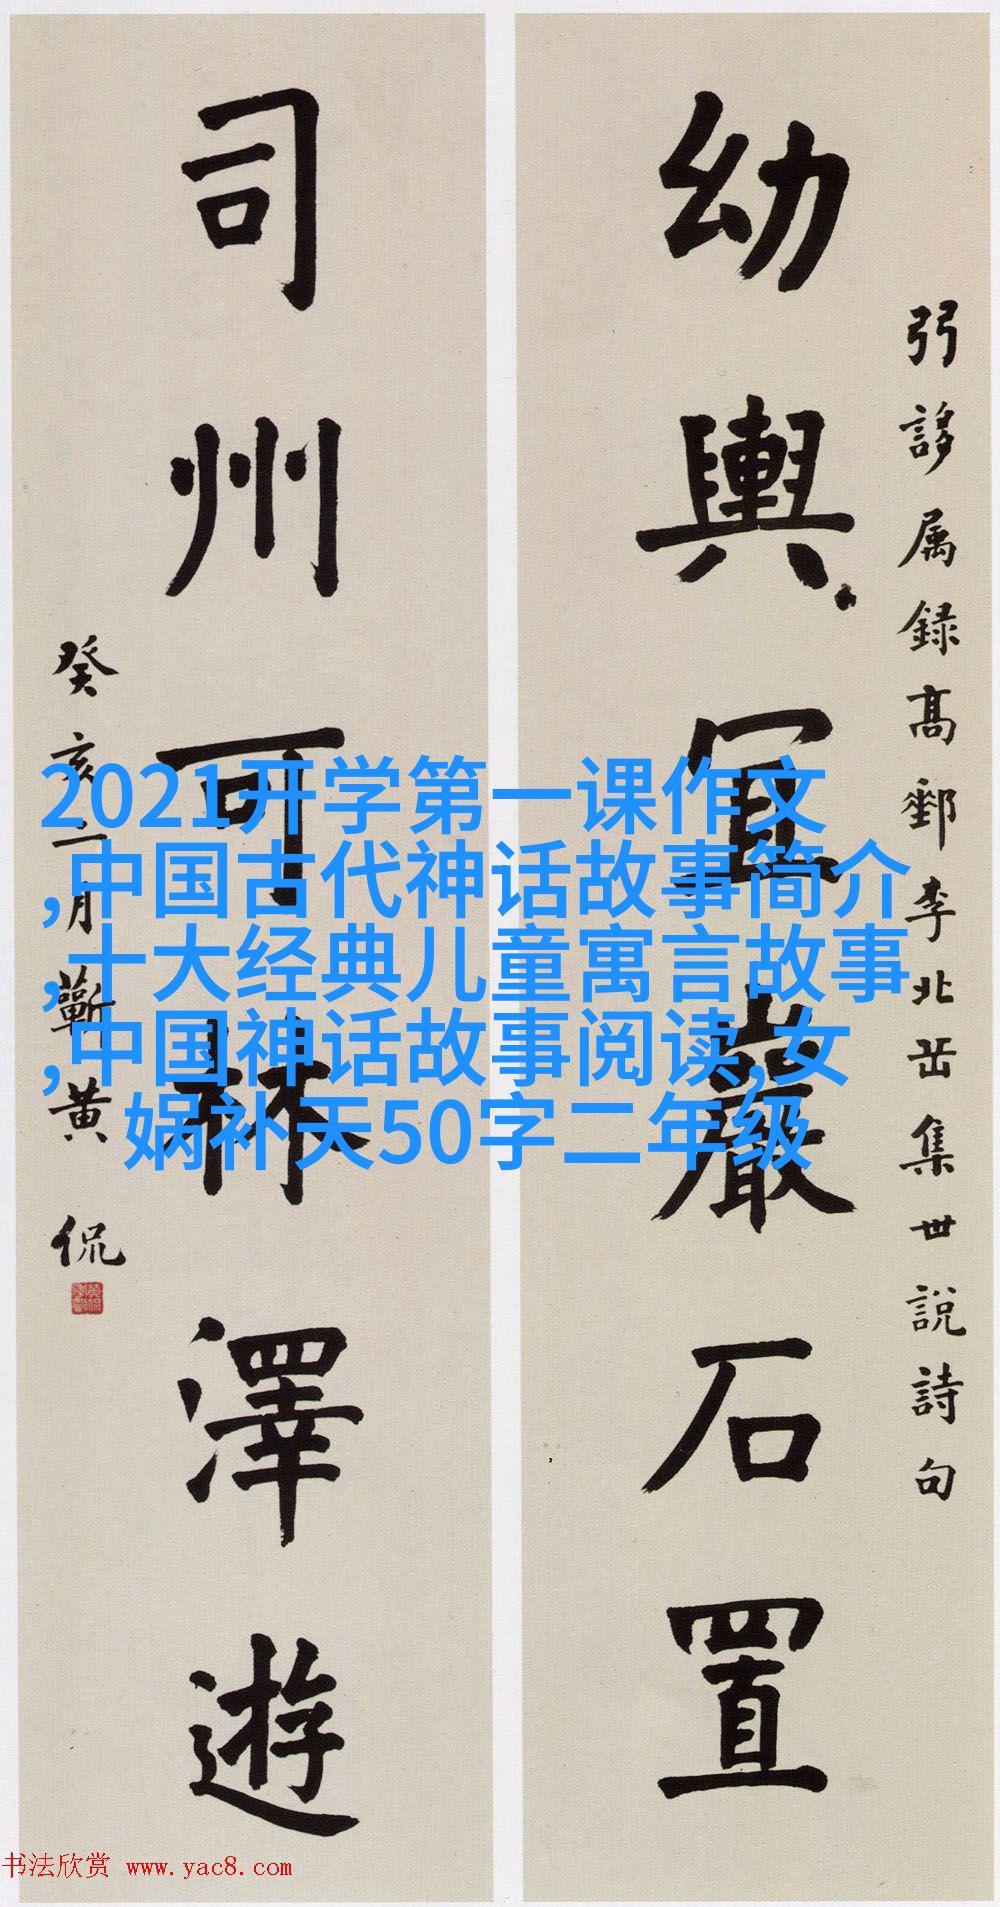 弜誃属録高郵李北岳集世說詩句
幼輿宜巖石置
司州可林澤遊
癸亥二月蘄黃侃
2021开学第一课作文
,中国古代神话故事简介
,十大经典儿童寓言故事
,中国神话故事阅读,女
娲补天50字二年级
书法欣赏 www.yac8.com